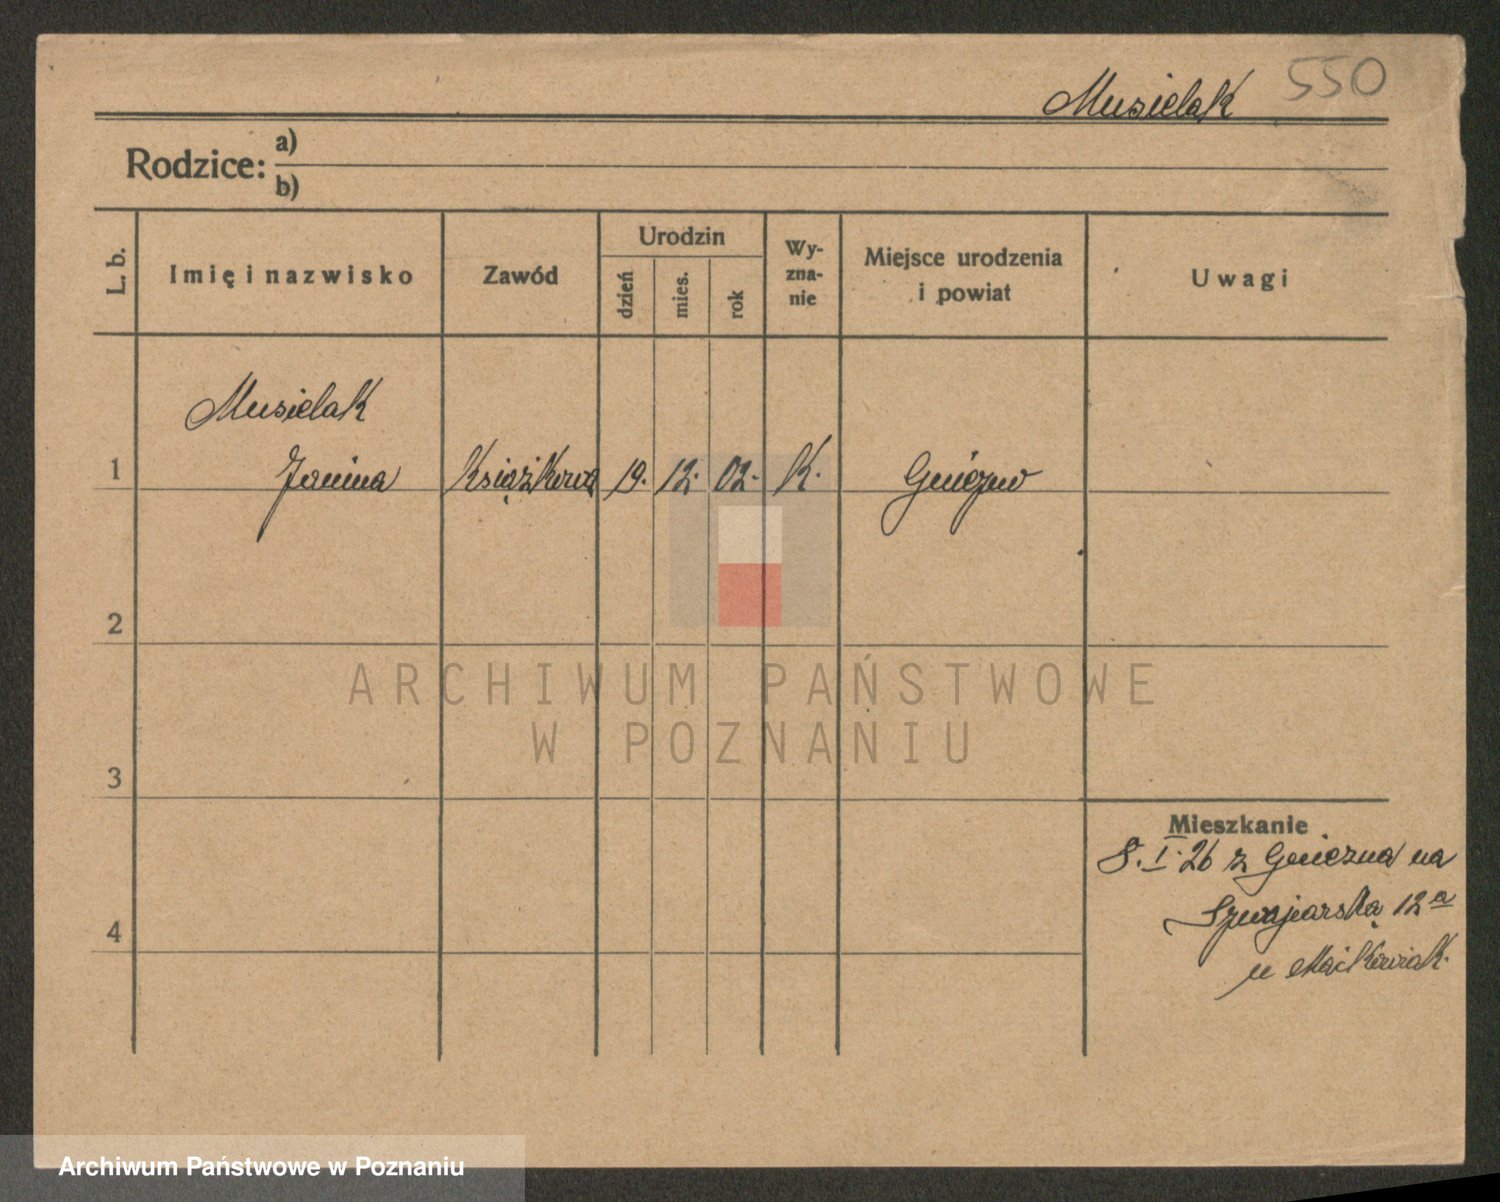 Musielak 550
Rodzice: a)
b)
L. b. Imię i nazwisko Zawód Urodzin dzień mies. rok Wy-
zna-
nie Miejsce urodzenia
i powiat Uwagi
Musielak
1 Janina Książkowa 19. 12. 02. K. Gniezno
2
ARCHIWUM PAŃSTWOWE
W POZNANIU
3
Mieszkanie
8. I. 26 z Gniezna na
4 Szwajcarską 12a
u Maćkowiak.
Archiwum Państwowe w Poznaniu